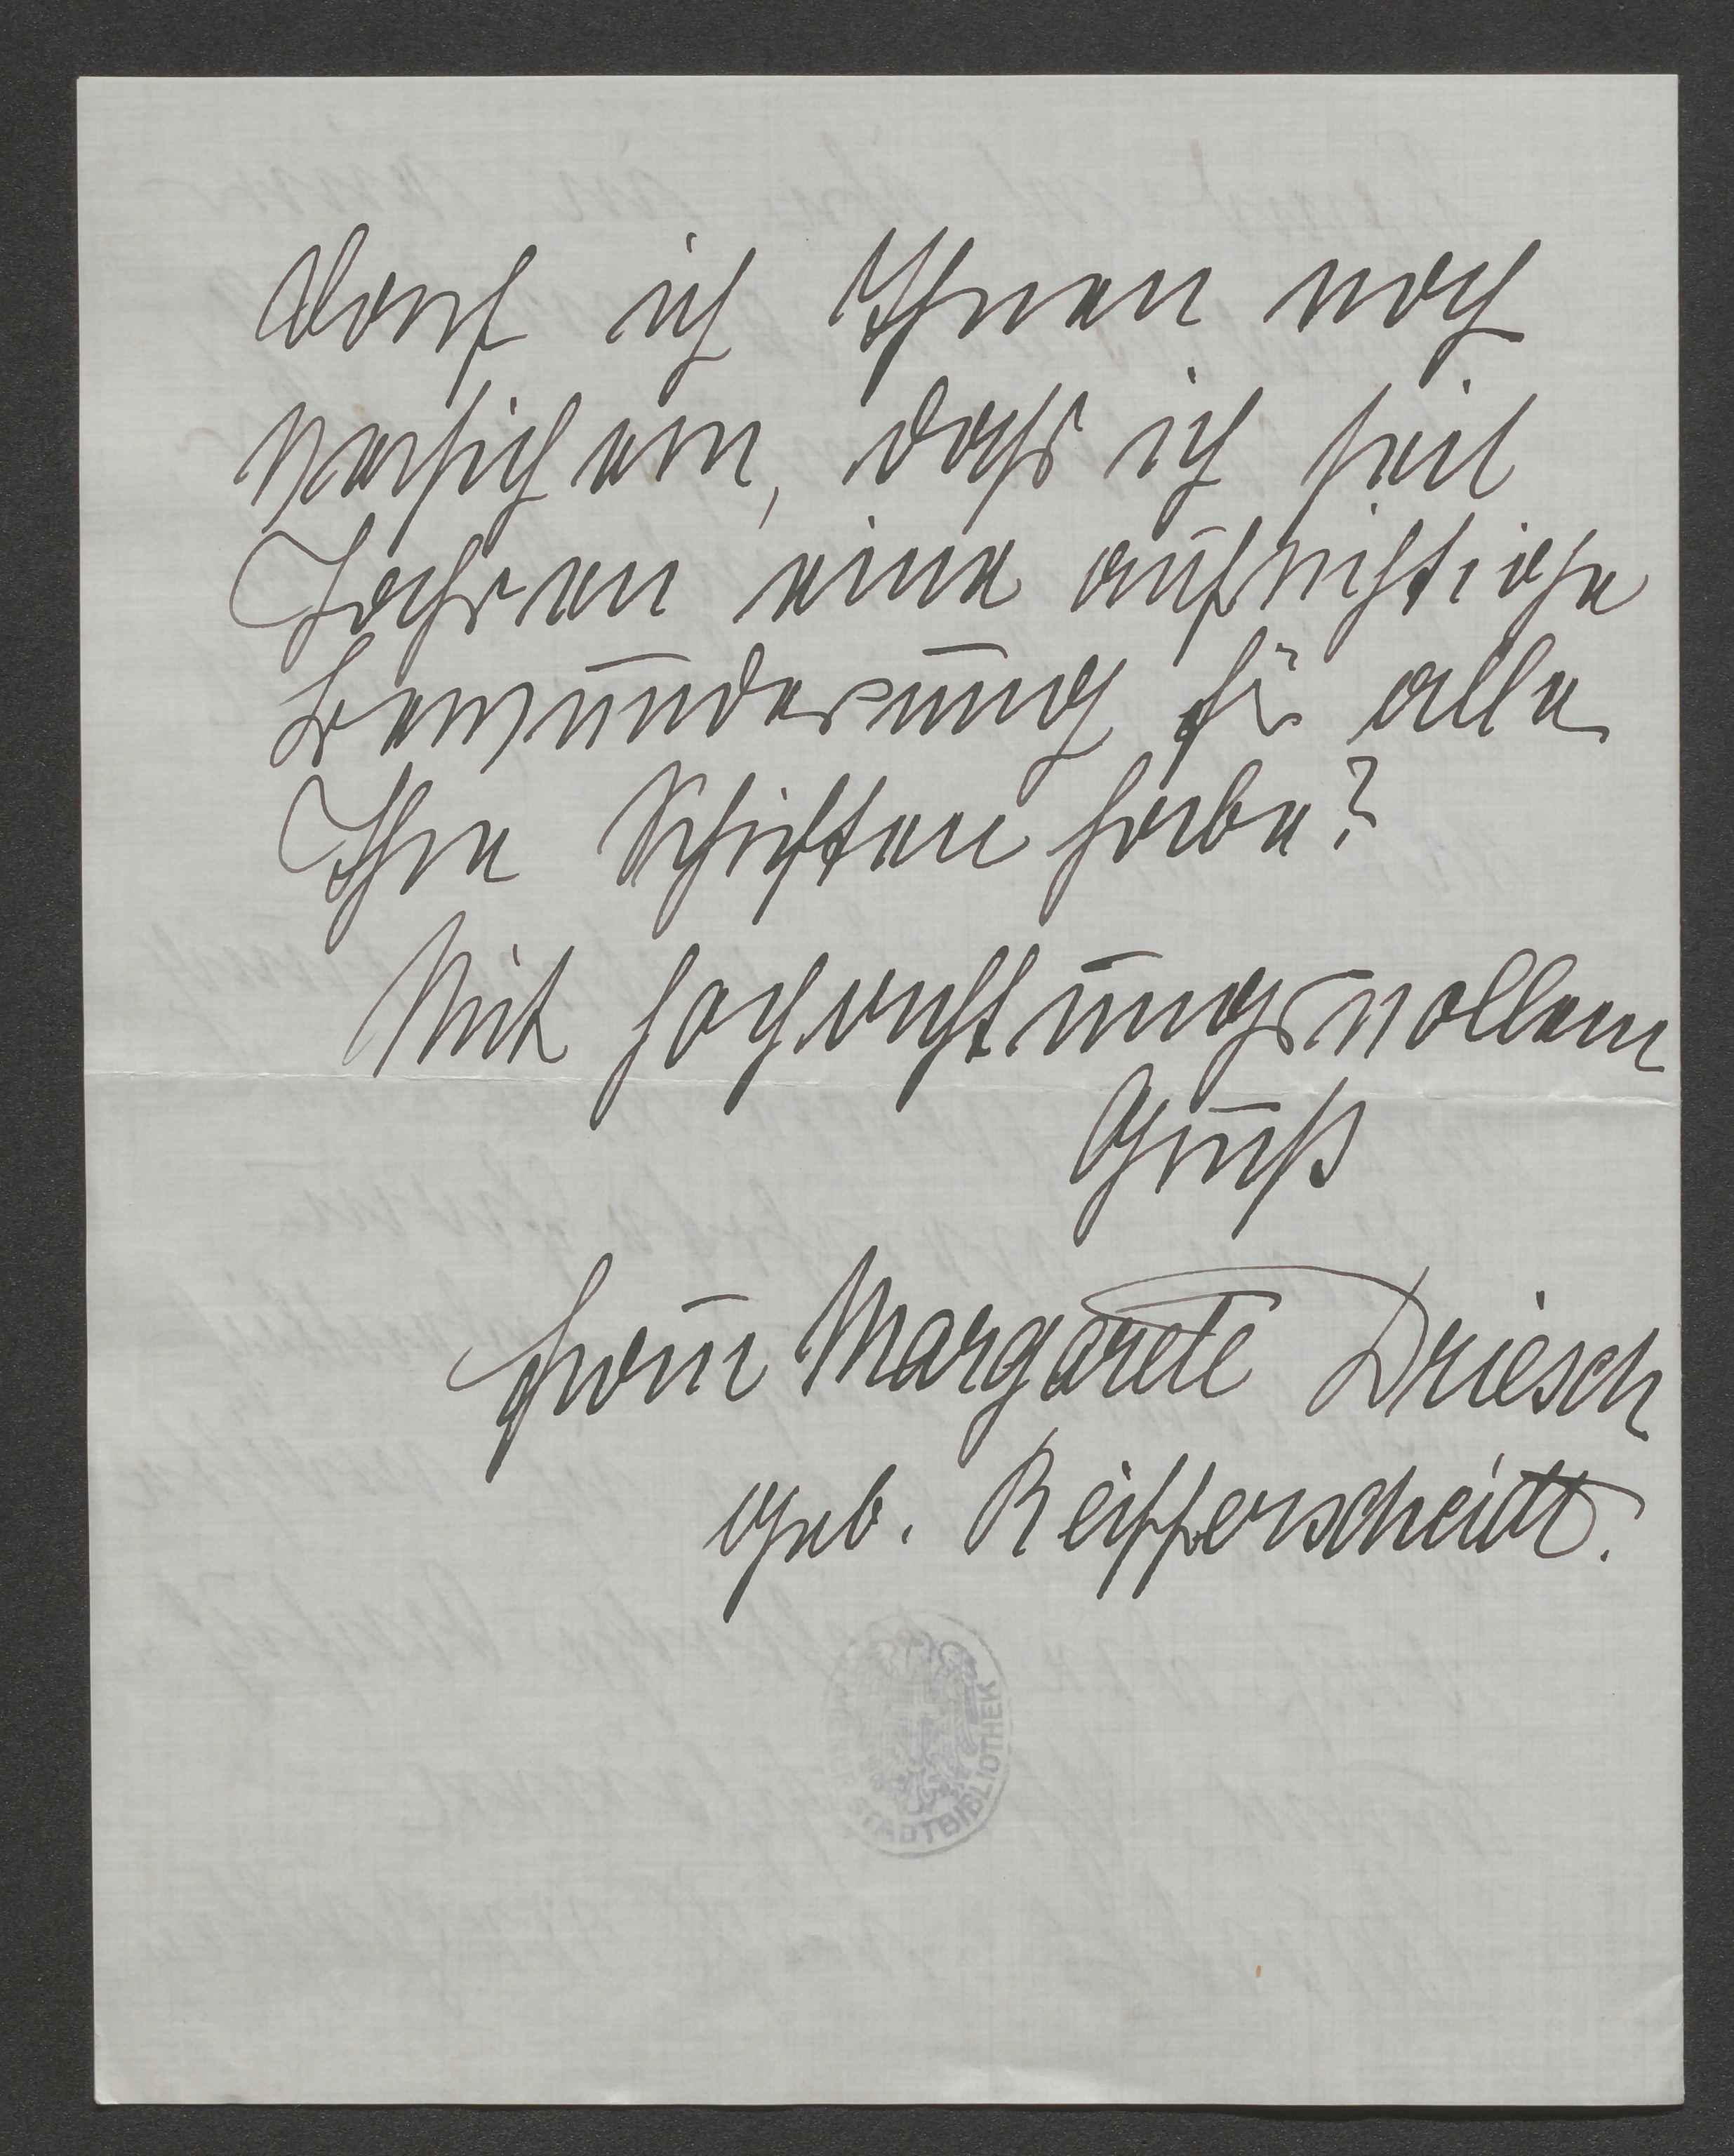 Darf ich Ihnen noch
versichern, daß ich seit
Jahren eine aufrichtige
Bewunderung für alle
Ihre Schriften habe?
Mit hochachtungsvollem
Gruß
Frau Margarete Driesch
geb. Reifferscheidt.
WIENER STADTBIBLIOTHEK